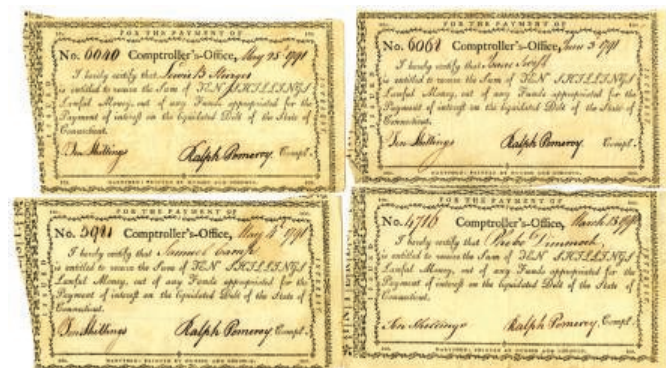 FOR THE PAYMENT OF
No. 6040 Comptroller's-Office, May 25th 1791
I hereby certify that Lewis B Sturges
is entitled to receive the Sum of TEN SHILLINGS
Lawful Money, out of any Funds appropriated for the
Payment of interest on the liquidated Debt of the State of
Connecticut.
Ten Shillings Ralph Pomeroy, Compt.
HARTFORD: PRINTED BY HUDSON AND GOODWIN.
FOR THE PAYMENT OF
No. 6061 Comptroller's-Office, June 3 1791
I hereby certify that Swift
is entitled to receive the Sum of TEN SHILLINGS
Lawful Money, out of any Funds appropriated for the
Payment of interest on the liquidated Debt of the State of
Connecticut.
Ten Shillings Ralph Pomeroy, Compt.
HARTFORD: PRINTED BY HUDSON AND GOODWIN.
FOR THE PAYMENT OF
No. 5921 Comptroller's-Office, May 4th 1791
I hereby certify that Samuel
is entitled to receive the Sum of TEN SHILLINGS
Lawful Money, out of any Funds appropriated for the
Payment of interest on the liquidated Debt of the State of
Connecticut.
Ten Shillings Ralph Pomeroy, Compt.
HARTFORD: PRINTED BY HUDSON AND GOODWIN.
FOR THE PAYMENT OF
No. 4716 Comptroller's-Office, March
I hereby certify that Phebe Dimmock
is entitled to receive the Sum of TEN SHILLINGS
Lawful Money, out of any Funds appropriated for the
Payment of interest on the liquidated Debt of the State of
Connecticut.
Ten Shillings Ralph Pomeroy, Compt.
HARTFORD: PRINTED BY HUDSON AND GOODWIN.